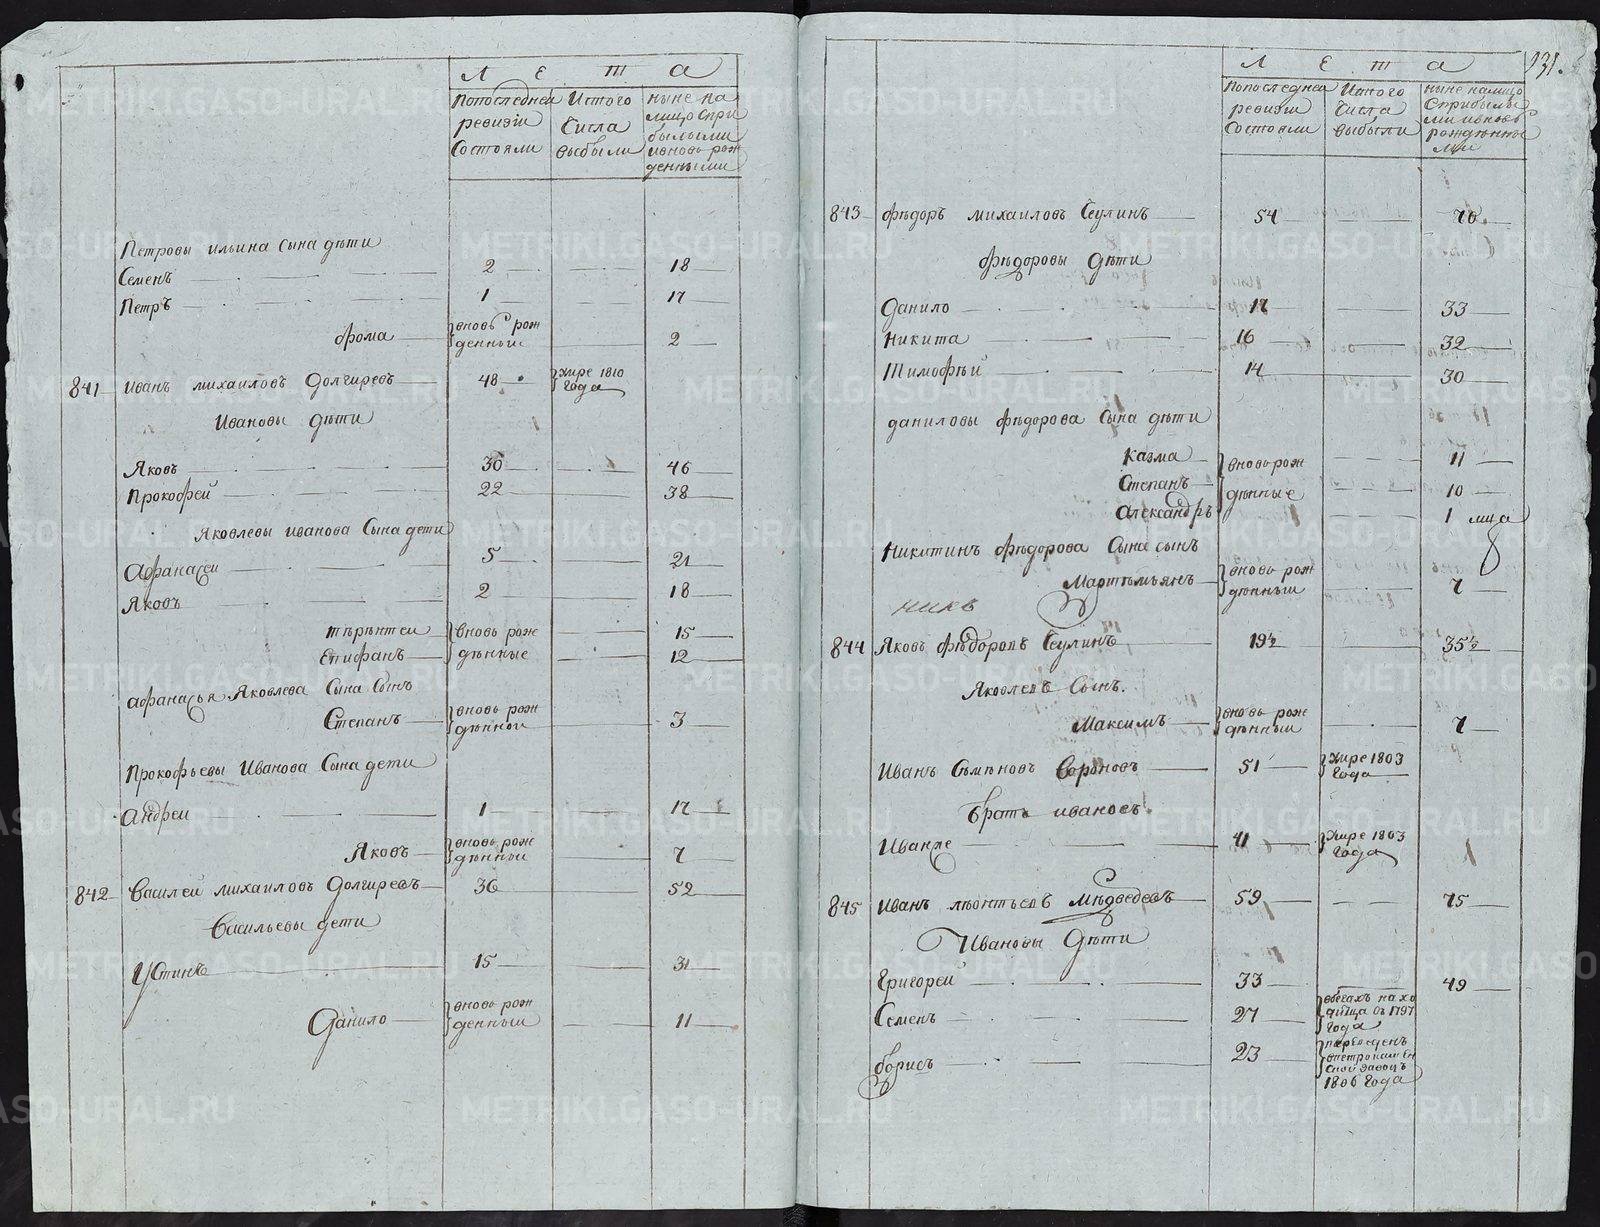 Лета
По последней ревизии Состояли
Из того Числа выбыли
ныне на лицо с при былыми и вновь рож денными
Петровы ильина Сына дѣти
Семенъ 2 18
Петръ 1 17
Фрома вновь рож денныи 2
841 Иванъ михаиловъ Долгиревъ 48 умре 1810 года
Ивановы дѣти
Яковъ 30 46
Прокофей 22 38
Яковлевы иванова Сына дети
Афанасеи 5 21
Яковъ 2 18
тѣрѣнтеи вновь рож 15
Епифанъ дѣнные 12
афанасья Яковлева Сына Сынъ
Степанъ вновь рож дѣнной 3
Прокофьевы Иванова Сына дети
Андреи 1 17
Яковъ вновь рож дѣнныи 7
842 Василеи михаиловъ Долгиревъ 36 52
Васильевы дети
Устинъ 15 31
Данило вновь рож денныи 11
131.
Лета
По последнеи ревизии Состояли
Из того Числа выбыли
ныне на лицо с прибылы ми и вновь рождѣнны ми
843 Фѣдоръ михаиловъ Сеулинъ 54 70
Фѣдоровы дѣти
Данило 17 33
Никита 16 32
Тимофѣй 14 30
даниловы фѣдорова Сына дѣти
Казма вновь рож 11
Степанъ дѣнные 10
Александръ 1 мца
Никитинъ фѣдорова Сына сынъ
Мартѣмьянъ вновь рож дѣнныи 7
никъ
844 Яковъ фѣдоровъ Сеулинъ 19½ 35½
Яковлевъ Сынъ.
Максимъ вновь рож дѣнныи 7
Иванъ Сѣмѣновъ Вороновъ 51 умре 1803 года
братъ ивановъ
Иванже 41 умре 1803 года
845 Иванъ лѣонтьевъ Мѣдведевъ 59 75
Ивановы дѣти
Григорей 33 49
Семенъ 27 вбегахъ нахо дитца съ 1797 года
борисъ 23 перевѣденъ впетрокамен ской заводъ 1806 года
METRIKI.GASO-URAL.RU